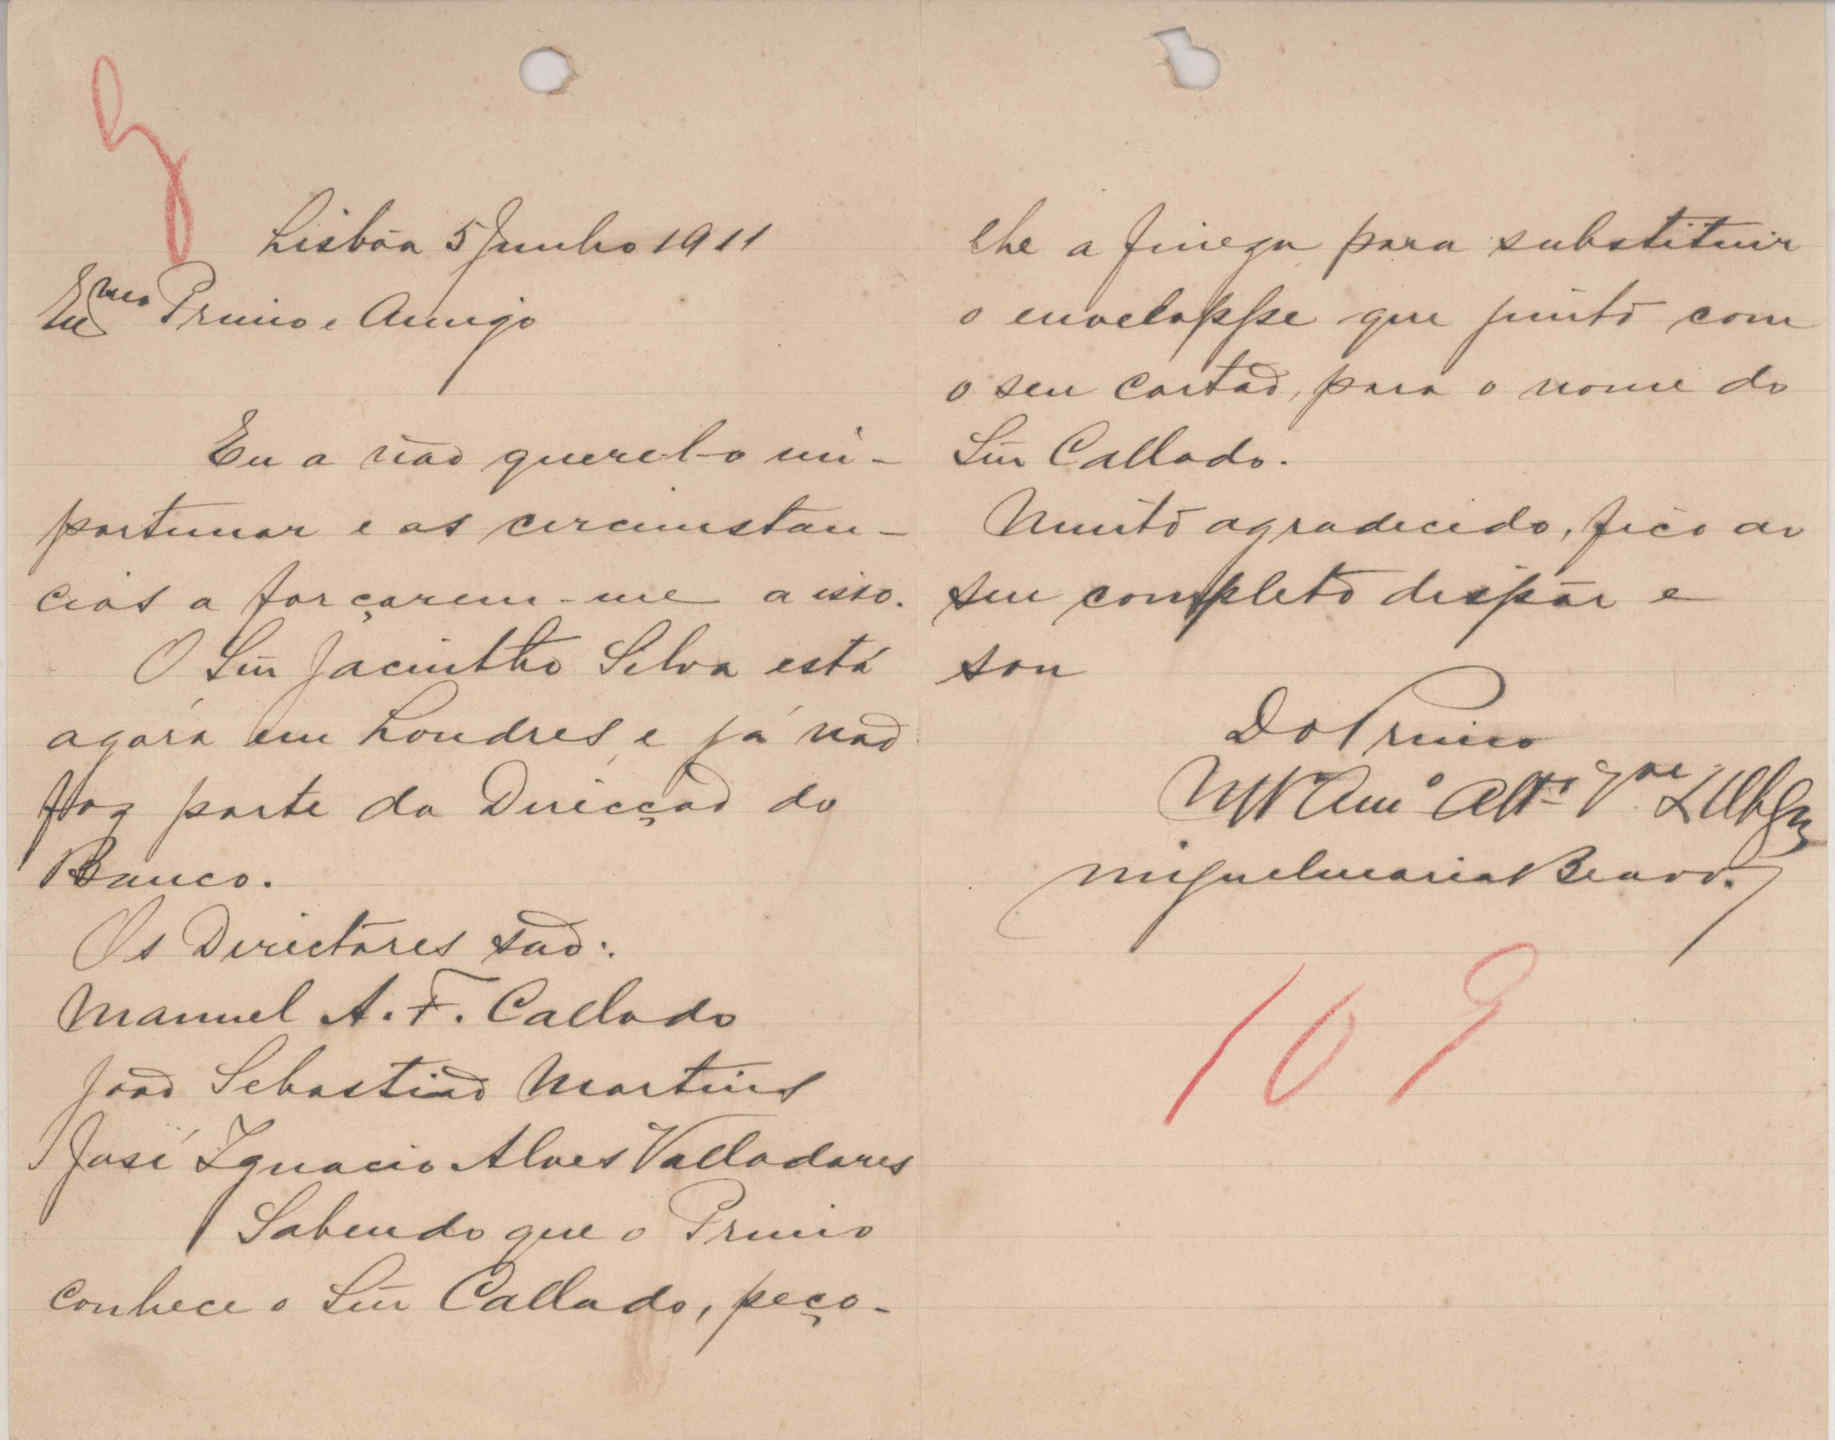 Lisbôa 5 Junho 1911
Exmo Primo e Amigo
Eu a não querel-o im-
portunar e as circumstan-
cias a forçarem-me a isso.
O Snr Jacintho Silva está
agora em Londres, e já não
faz parte da Direcção do
Banco.
Os Directores são:
Manuel A. F. Callado
João Sebastião Martins
José Ignacio Alves Valladares
Sabendo que o Primo
conhece o Snr Callado, peço-
lhe a fineza para substituir
o enveloppe que junto com
o seu cartão, para o nome do
Snr Callado.
Muito agradecido, fico ao
seu completo dispôr e
sou
Do Primo
Mto Amo Atto Vor
Miguel Maria Bravo.
109